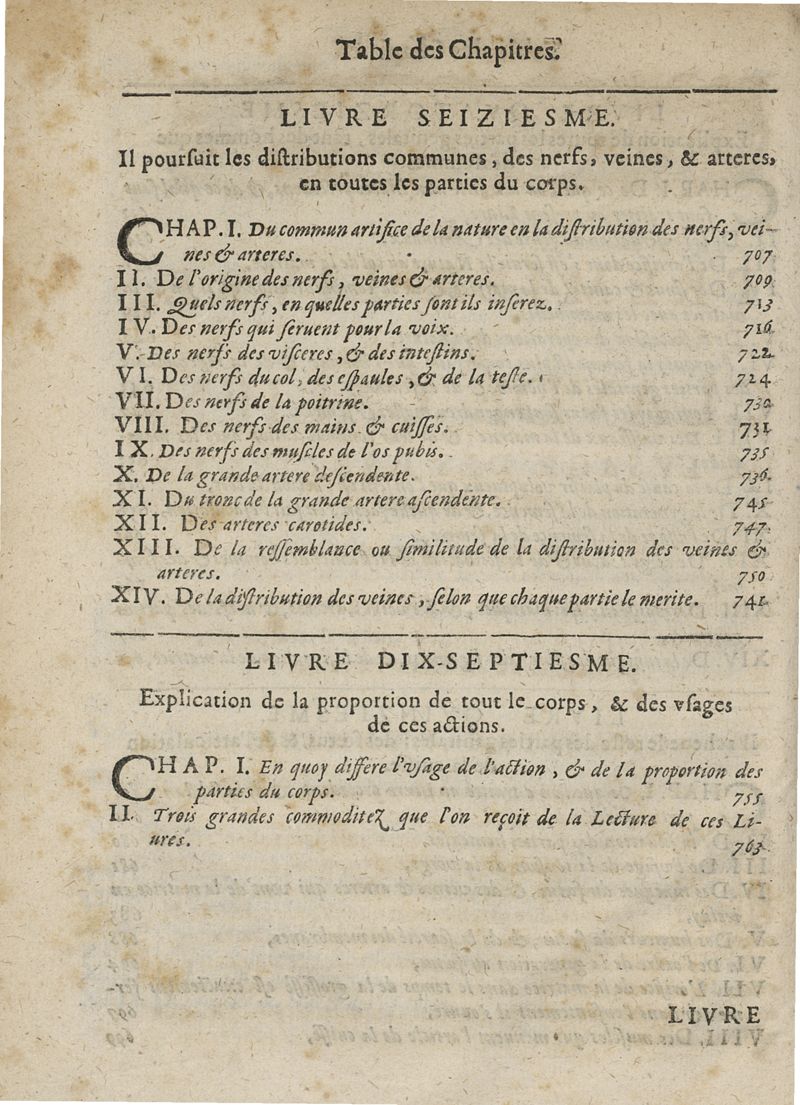 Table des Chapitres.
LIVRE SEIZIESME.
Il pourſuit les diſtributions communes, des nerfs, veines, & arteres,
en toutes les parties du corps.
CHAP. I. Du commun artifice de la nature en la diſtribution des nerfs, vei-
nes & arteres. 707
II. De l'origine des nerfs, veines & arteres. 709
III. Quels nerfs, en quelles parties ſont ils inſerez. 713
IV. Des nerfs qui ſeruent pour la voix. 716
V. Des nerfs des viſceres, & des inteſtins. 722
VI. Des nerfs du col, des eſpaules, & de la teſte. 724
VII. Des nerfs de la poitrine. 730
VIII. Des nerfs des mains & cuiſſes. 731
IX. Des nerfs des muſcles de l'os pubis. 735
X. De la grande artere deſcendente. 736
XI. Du tronc de la grande artere aſcendente. 745
XII. Des arteres carotides. 747
XIII. De la reſſemblance ou ſimilitude de la diſtribution des veines &
arteres. 750
XIV. De la diſtribution des veines, ſelon que chaque partie le merite. 741
LIVRE DIX-SEPTIESME.
Explication de la proportion de tout le corps, & des vſages
de ces actions.
CHAP. I. En quoy differe l'vſage de l'action, & de la proportion des
parties du corps. 755
II. Trois grandes commoditez que l'on reçoit de la Lecture de ces Li-
ures. 763
LIVRE